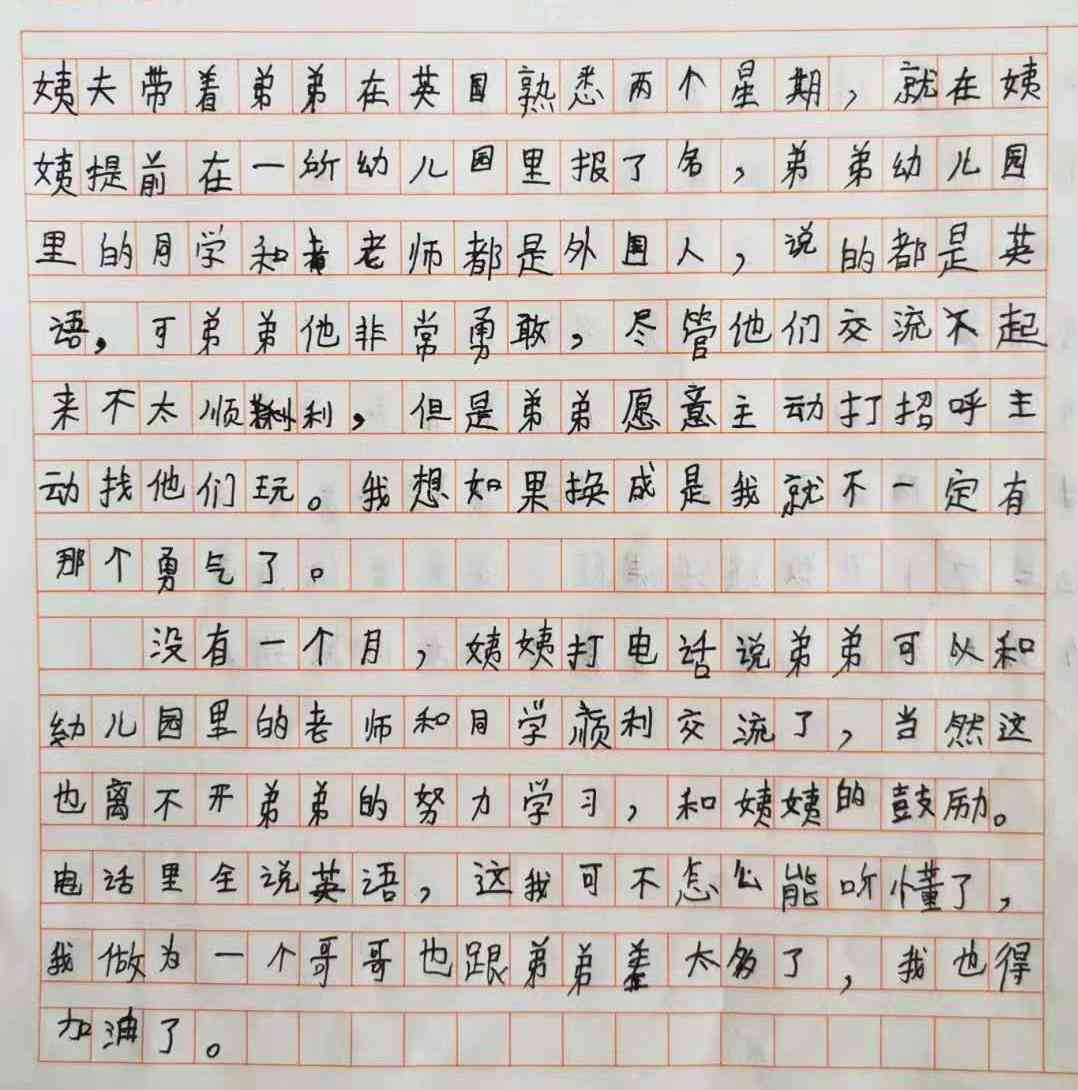 姨夫带着弟弟在英国熟悉两个星期，就在姨
姨提前在一所幼儿园里报了名，弟弟幼儿园
里的同学和老师都是外国人，说的都是英
语，可弟弟他非常勇敢，尽管他们交流不起
来不太顺利，但是弟弟愿意主动打招呼主
动找他们玩。我想如果换成是我就不一定有
那个勇气了。
没有一个月，姨姨打电话说弟弟可以和
幼儿园里的老师和同学顺利交流了，当然这
也离不开弟弟的努力学习，和姨姨的鼓励。
电话里全说英语，这我可不怎么能听懂了，
我做为一个哥哥也跟弟弟差太多了，我也得
加油了。